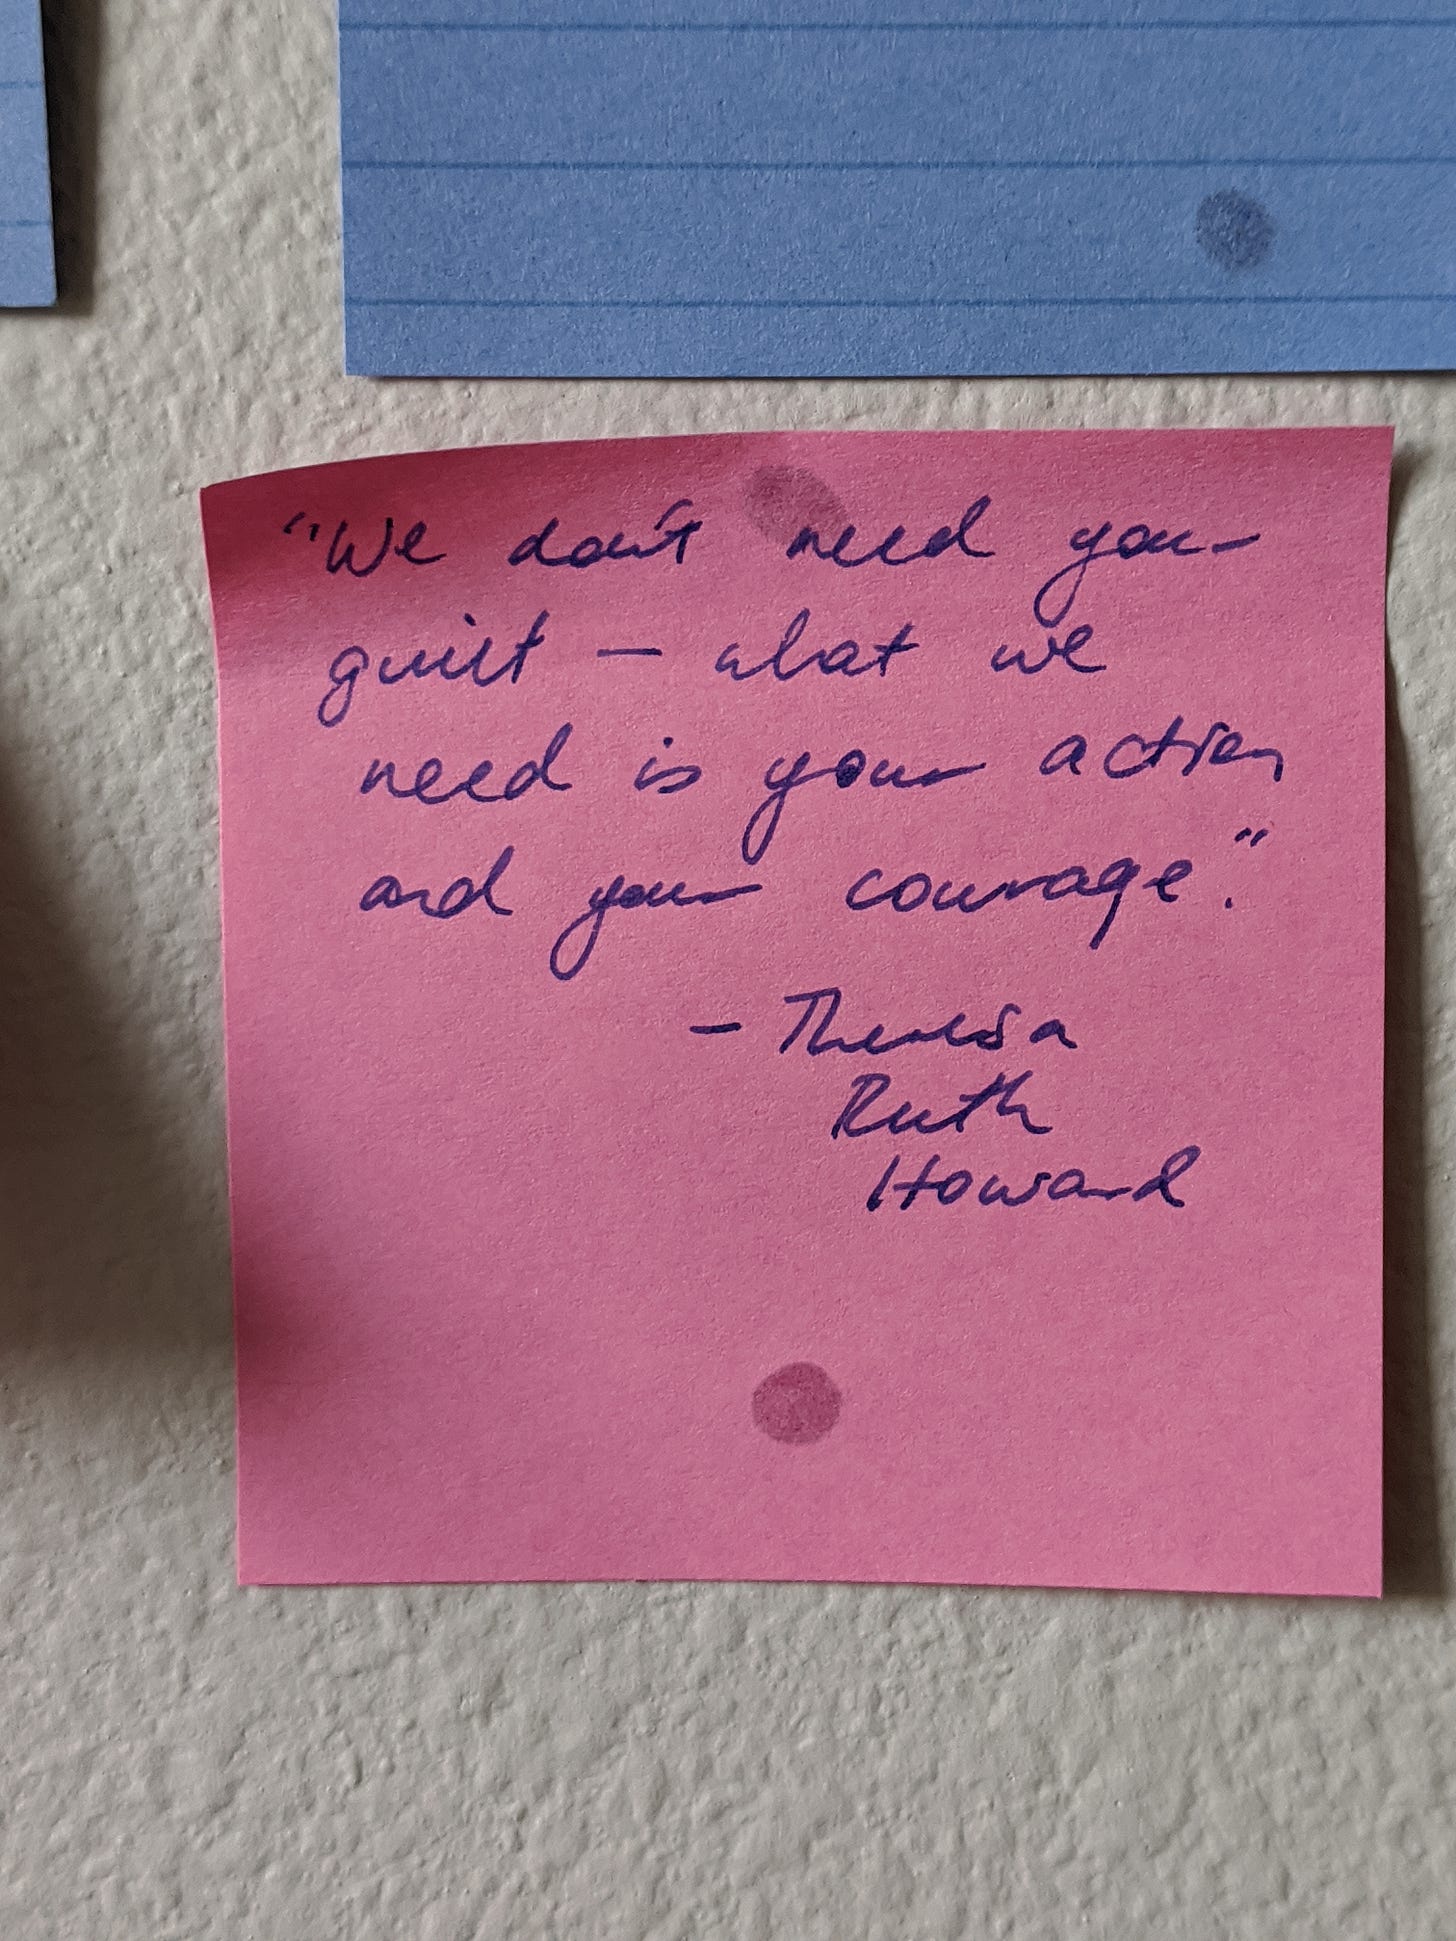 "We don't need your
guilt – what we
need is your action
and your courage."
– Theresa
Ruth
Howard